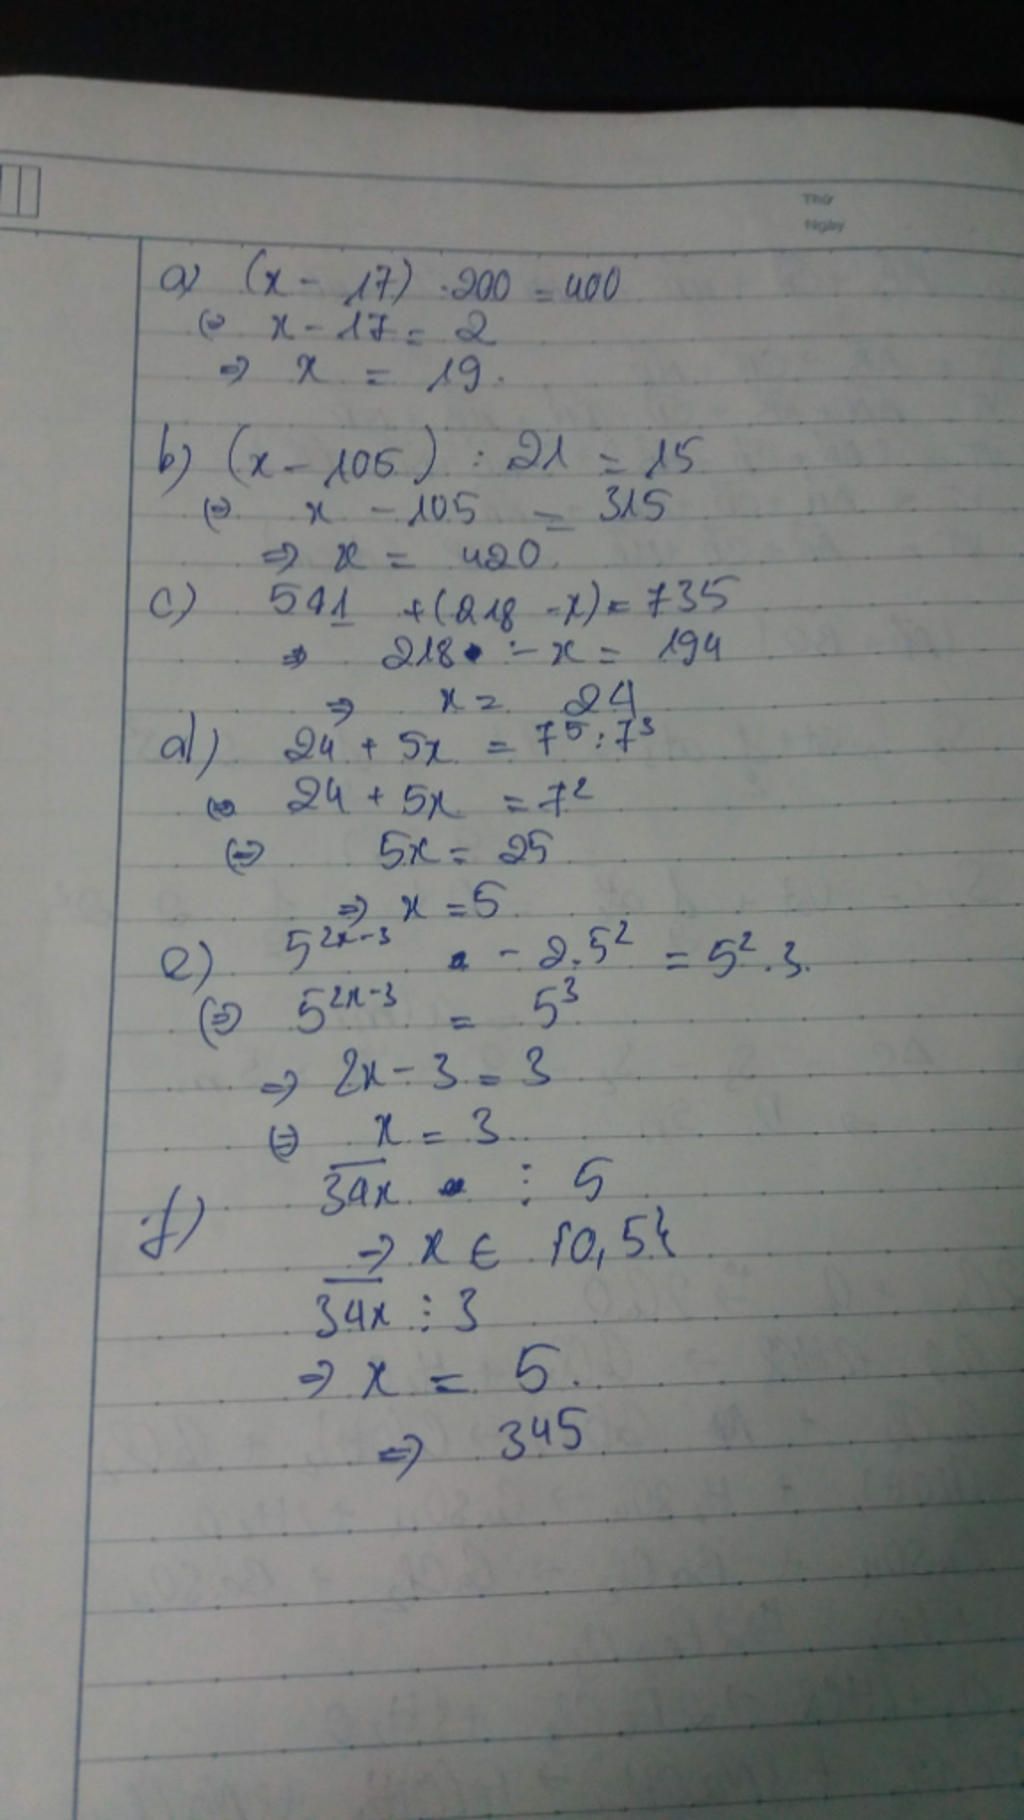 Thứ
Ngày
a) (x - 17) . 200 = 400
⇔ x - 17 = 2
⇒ x = 19.
b) (x - 105) : 21 = 15
⇔ x - 105 = 315
⇒ x = 420
c) 541 + (218 - x) = 735
⇒ 218 - x = 194
⇒ x = 24
d) 24 + 5x = 7⁵ : 7³
⇔ 24 + 5x = 7²
⇔ 5x = 25
⇒ x = 5
e) 5²ˣ⁻³ - 2.5² = 5².3.
⇔ 5²ˣ⁻³ = 5³
⇒ 2x - 3 = 3
⇔ x = 3
f) 34x ⋮ 5
⇒ x ∈ {0,5}
34x ⋮ 3
⇒ x = 5.
⇒ 345